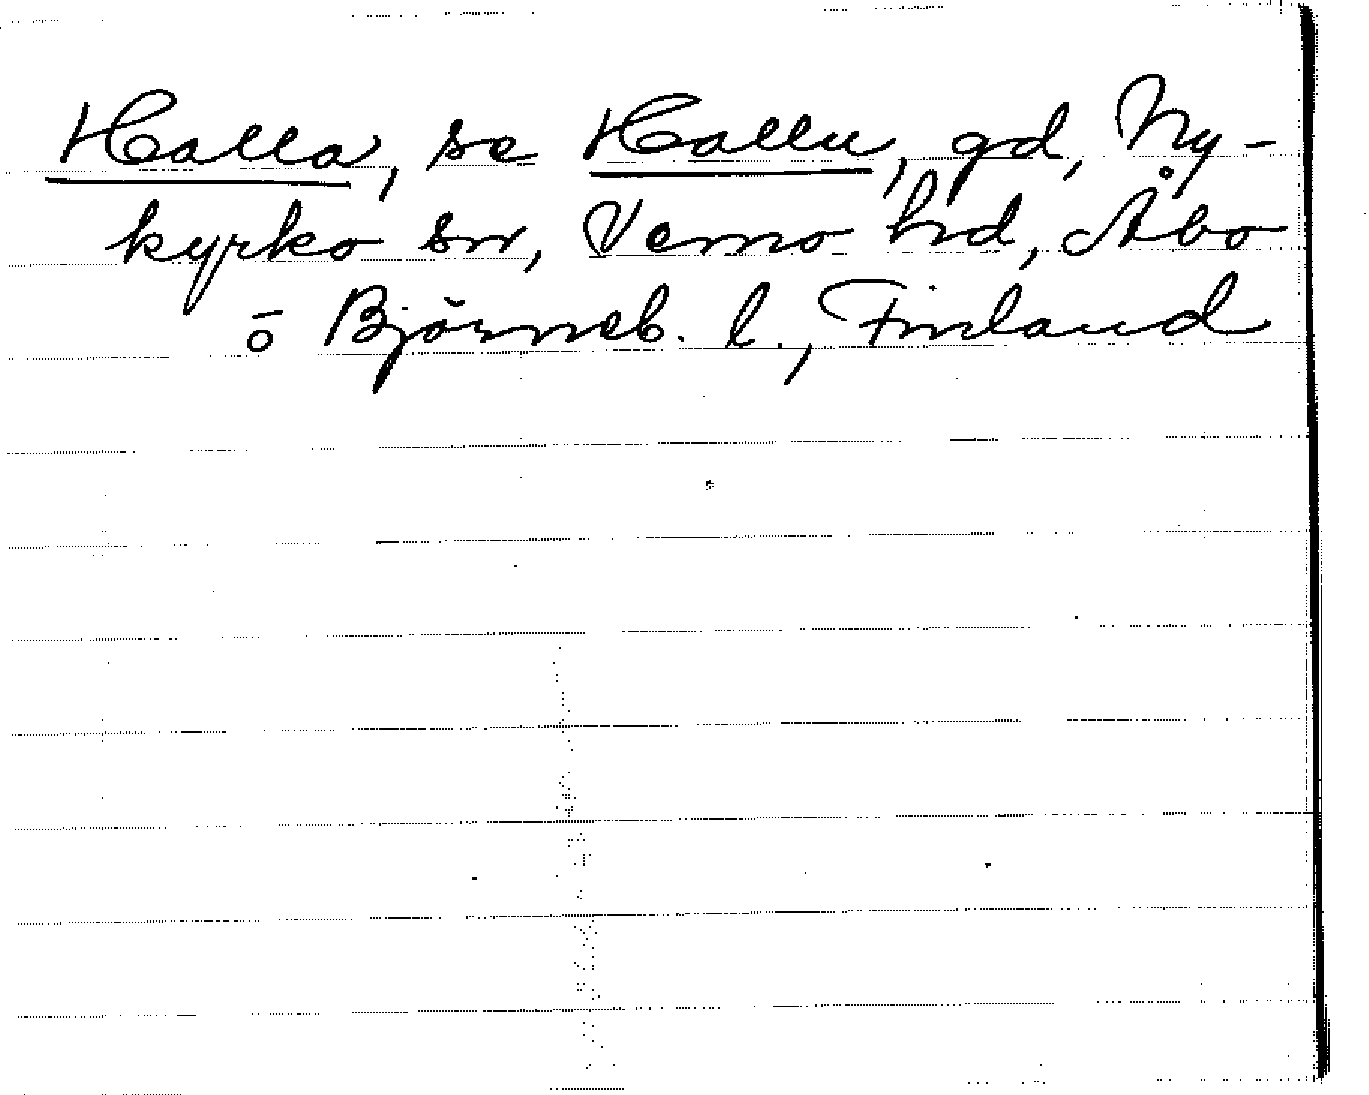 Halla, se Hallu, gd, Ny-
kyrko sn, Vemo hrd, Åbo
o Björneb. l., Finland